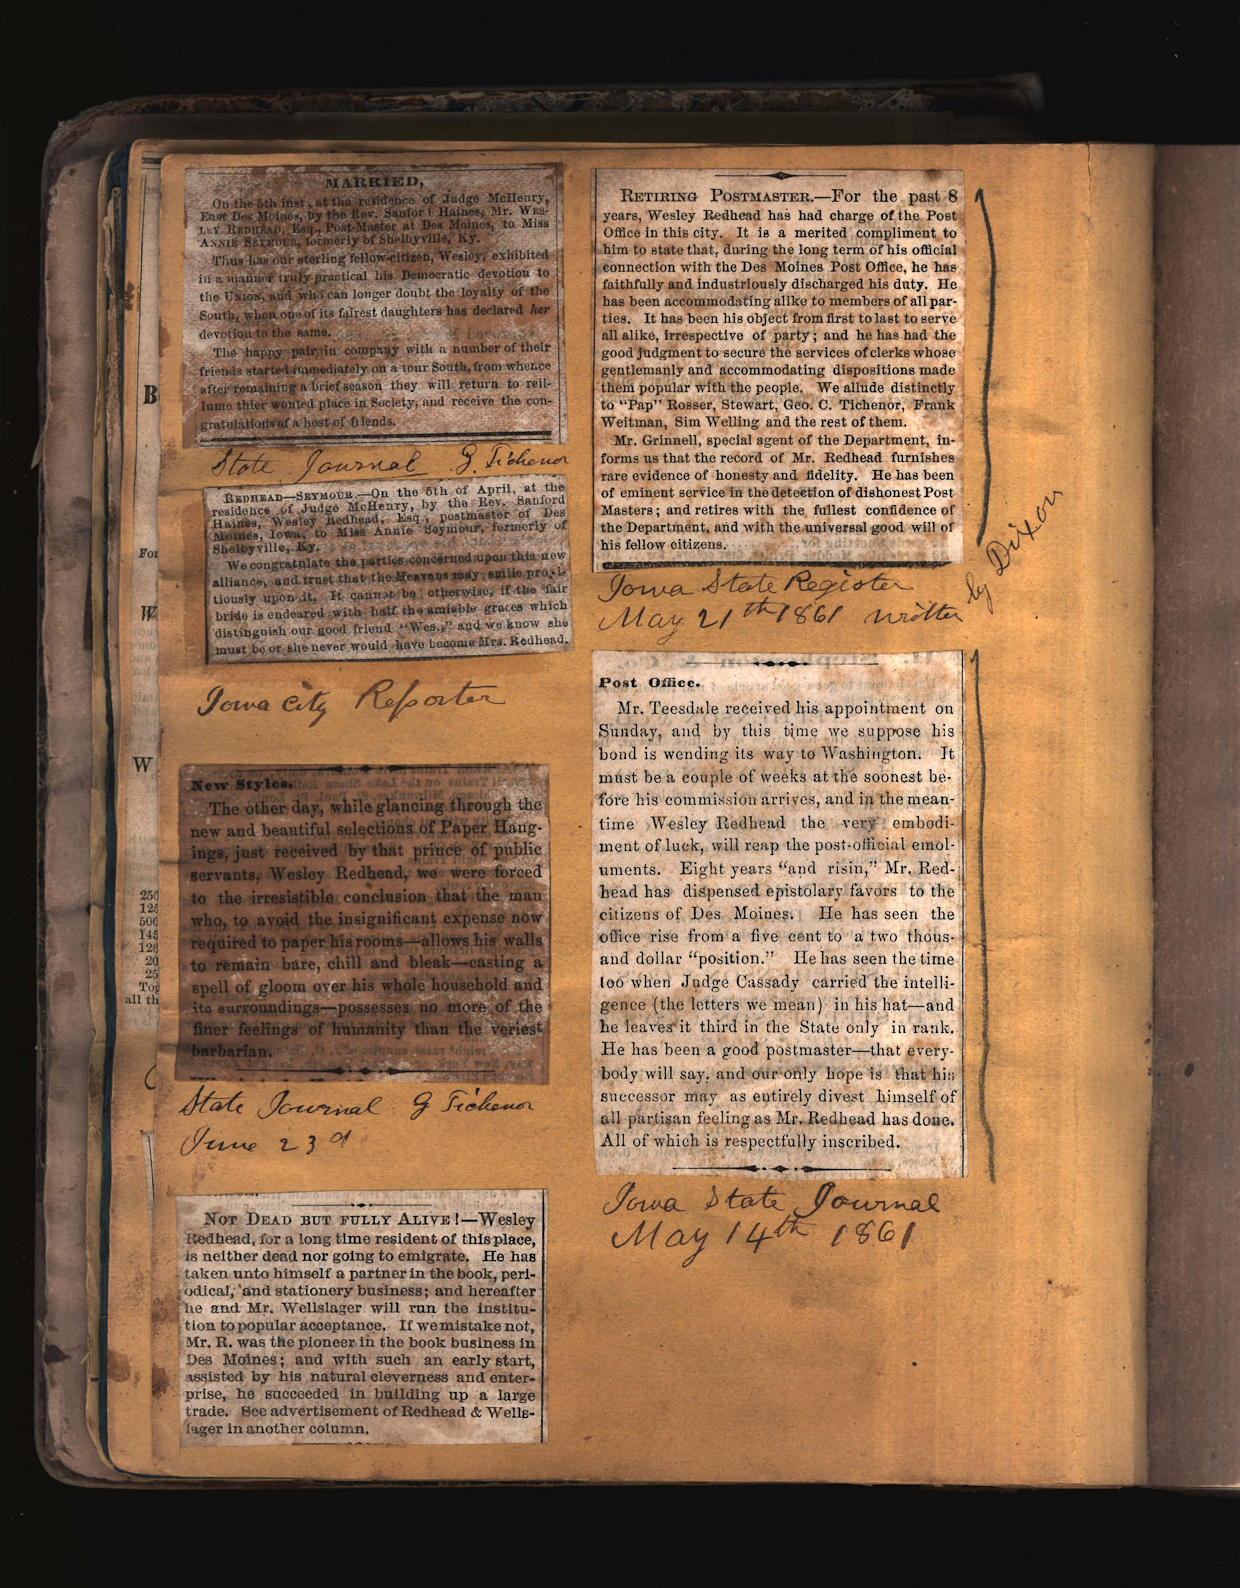 MARRIED,
On the 5th inst, at the residence of Judge McHenry,
East Des Moines, by the Rev. Sanford Haines, Mr. WES-
LEY REDHEAD, Esq., Post-Master at Des Moines, to Miss
ANNIE SEYMOUR, formerly of Shelbyville, Ky.
Thus has our sterling fellow-citizen, Wesley, exhibited
in a manner truly practical his Democratic devotion to
the UNION, and who can longer doubt the loyalty of the
South, when one of its fairest daughters has declared her
devotion to the same.
The happy pair in company with a number of their
friends started immediately on a tour South, from whence
after remaining a brief season they will return to reil-
lume thier wonted place in Society, and receive the con-
gratulations of a host of friends.
State Journal G. Tichenor
REDHEAD—SEYMOUR.—On the 5th of April, at the
residence of Judge McHenry, by the Rev. Sanford
Haines, Wesley Redhead, Esq., postmaster of Des
Moines, Iowa, to Miss Annie Seymour, formerly of
Shelbyville, Ky.
We congratulate the parties concerned upon this new
alliance, and trust that the Heavens may smile propi-
tiously upon it. It cannot be otherwise, if the fair
bride is endeared with half the amiable graces which
distinguish our good friend "Wes.," and we know she
must be or she never would have become Mrs. Redhead.
Iowa City Reporter
New Styles.
The other day, while glancing through the
new and beautiful selections of Paper Hang-
ings, just received by that prince of public
servants, Wesley Redhead, we were forced
to the irresistible conclusion that the man
who, to avoid the insignificant expense now
required to paper his rooms—allows his walls
to remain bare, chill and bleak—casting a
spell of gloom over his whole household and
its surroundings—possesses no more of the
finer feelings of humanity than the veriest
barbarian.
State Journal G Tichenor
June 23d
NOT DEAD BUT FULLY ALIVE!—Wesley
Redhead, for a long time resident of this place,
is neither dead nor going to emigrate. He has
taken unto himself a partner in the book, peri-
odical, and stationery business; and hereafter
he and Mr. Wellslager will run the institu-
tion to popular acceptance. If we mistake not,
Mr. R. was the pioneer in the book business in
Des Moines; and with such an early start,
assisted by his natural cleverness and enter-
prise, he succeeded in building up a large
trade. See advertisement of Redhead & Wells-
lager in another column.
RETIRING POSTMASTER.—For the past 8
years, Wesley Redhead has had charge of the Post
Office in this city. It is a merited compliment to
him to state that, during the long term of his official
connection with the Des Moines Post Office, he has
faithfully and industriously discharged his duty. He
has been accommodating alike to members of all par-
ties. It has been his object from first to last to serve
all alike, irrespective of party; and he has had the
good judgment to secure the services of clerks whose
gentlemanly and accommodating dispositions made
them popular with the people. We allude distinctly
to "Pap" Rosser, Stewart, Geo. C. Tichenor, Frank
Weitman, Sim Welling and the rest of them.
Mr. Grinnell, special agent of the Department, in-
forms us that the record of Mr. Redhead furnishes
rare evidence of honesty and fidelity. He has been
of eminent service in the detection of dishonest Post
Masters; and retires with the fullest confidence of
the Department, and with the universal good will of
his fellow citizens.
Iowa State Register
May 21th 1861 written
by Dixon
Post Office.
Mr. Teesdale received his appointment on
Sunday, and by this time we suppose his
bond is wending its way to Washington. It
must be a couple of weeks at the soonest be-
fore his commission arrives, and in the mean-
time Wesley Redhead the very embodi-
ment of luck, will reap the post-official emol-
uments. Eight years "and risin," Mr. Red-
head has dispensed epistolary favors to the
citizens of Des Moines. He has seen the
office rise from a five cent to a two thous-
and dollar "position." He has seen the time
too when Judge Cassady carried the intelli-
gence (the letters we mean) in his hat—and
he leaves it third in the State only in rank.
He has been a good postmaster—that every-
body will say, and our only hope is that his
successor may as entirely divest himself of
all partisan feeling as Mr. Redhead has done.
All of which is respectfully inscribed.
Iowa State Journal
May 14th 1861
B
For
W
W
250
125
500
145
120
20
25
all th